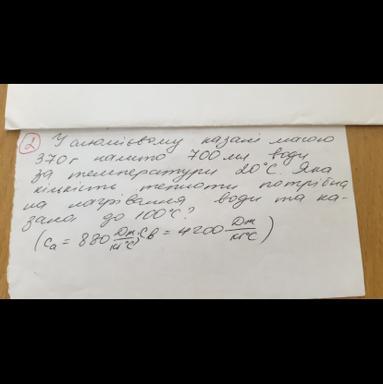 2) У алюмінієвому казані масою
370 г налито 700 мл води
за температури 20°С. Яка
кількість теплоти потрібна
на нагрівання води та ка-
зана до 100°С?
(cа = 880 Дж/кг°С; cв = 4200 Дж/кг°С)